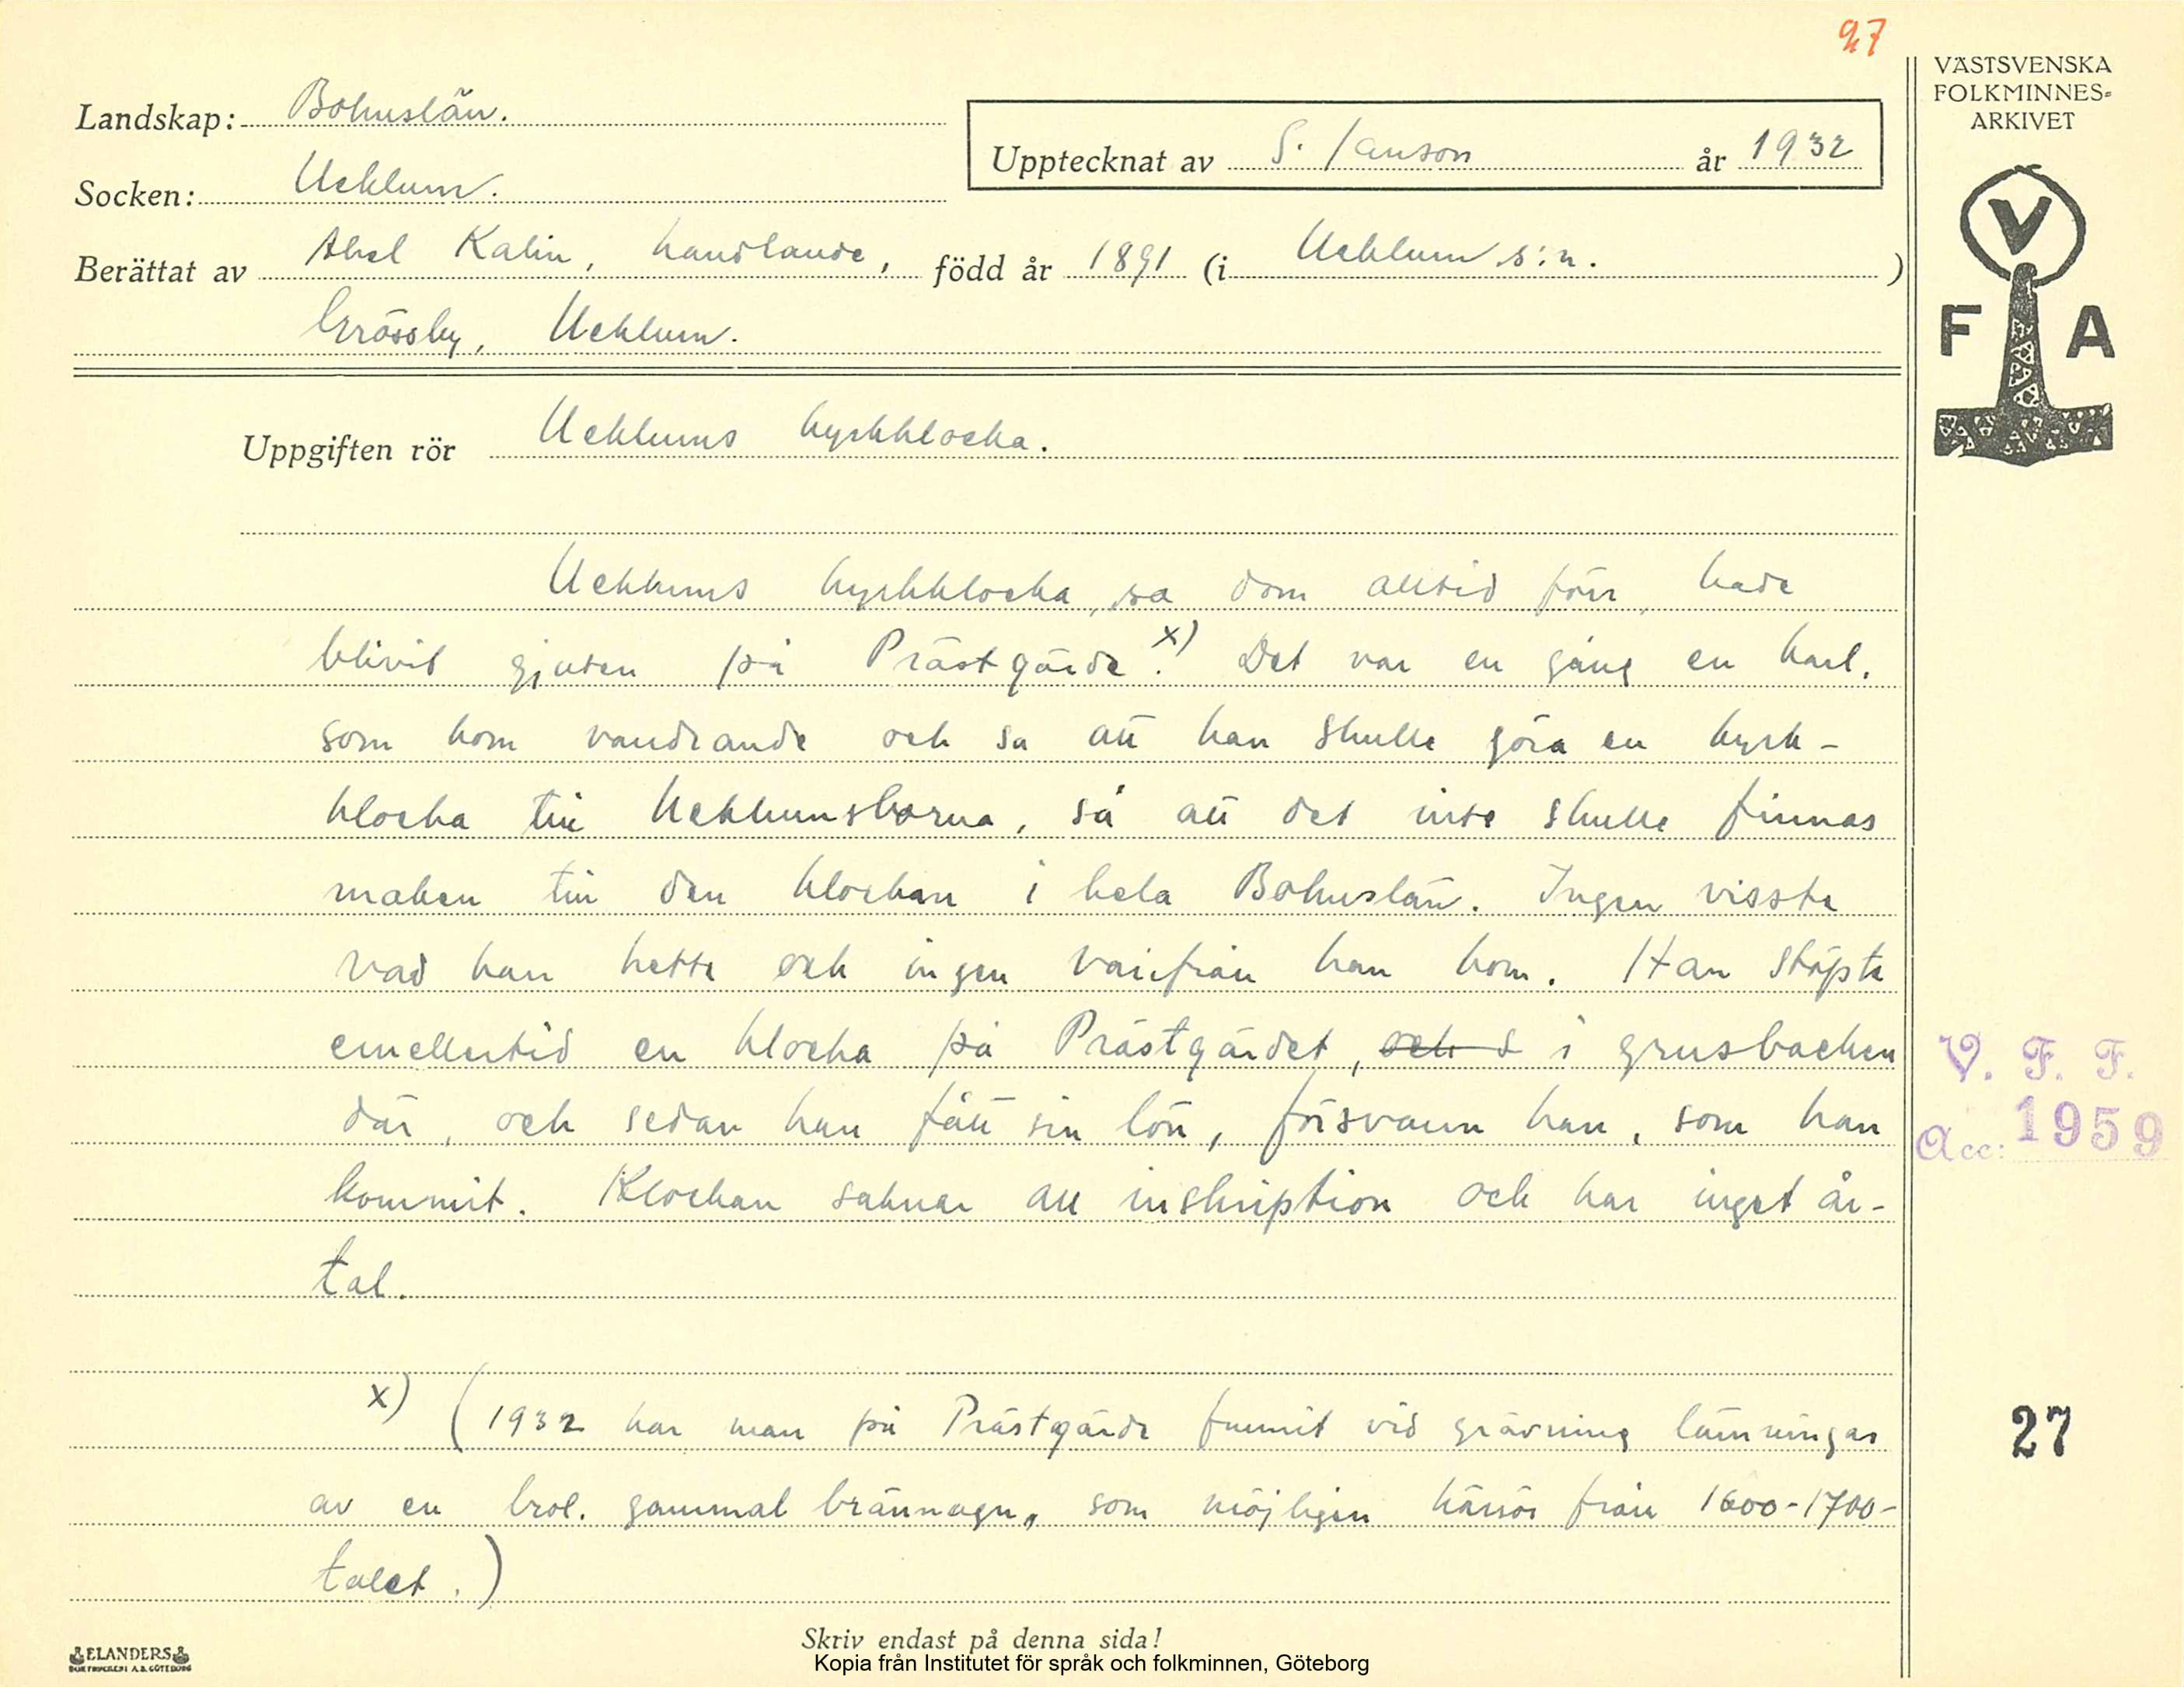 27
VÄSTSVENSKA
FOLKMINNES-
ARKIVET
Landskap: Bohuslän.
Upptecknat av S. Janson år 1932
Socken: Ucklum.
Berättat av Abel Kalin, handlande, född år 1891 (i Ucklum s:n. )
Grössby, Ucklum.
V
F A
Uppgiften rör Ucklums kyrkklocka.
Ucklums kyrkklocka, sa dom alltid förr, hade
blivit gjuten på Prästgärde.x) Det var en gång en karl,
som kom vandrande och sa att han skulle göra en kyrk-
klocka till Ucklumsborna, så att det inte skulle finnas
maken till den klockan i hela Bohuslän. Ingen visste
vad han hette och ingen varifrån han kom. Han stöpte
emellertid en klocka på Prästgärdet, och s i grusbacken
där, och sedan han fått sin lön, försvann han, som han
kommit. Klockan saknar all inskription och har inget år-
tal.
V. F. F.
Acc: 1959
x) (1932 har man på Prästgärde funnit vid grävning lämningar
27
av en brol. gammal brännugn, som möjligen härrör från 1600-1700-
talet.)
Skriv endast på denna sida!
ELANDERS
BOKTRYCKERI A.B. GÖTEBORG
Kopia från Institutet för språk och folkminnen, Göteborg